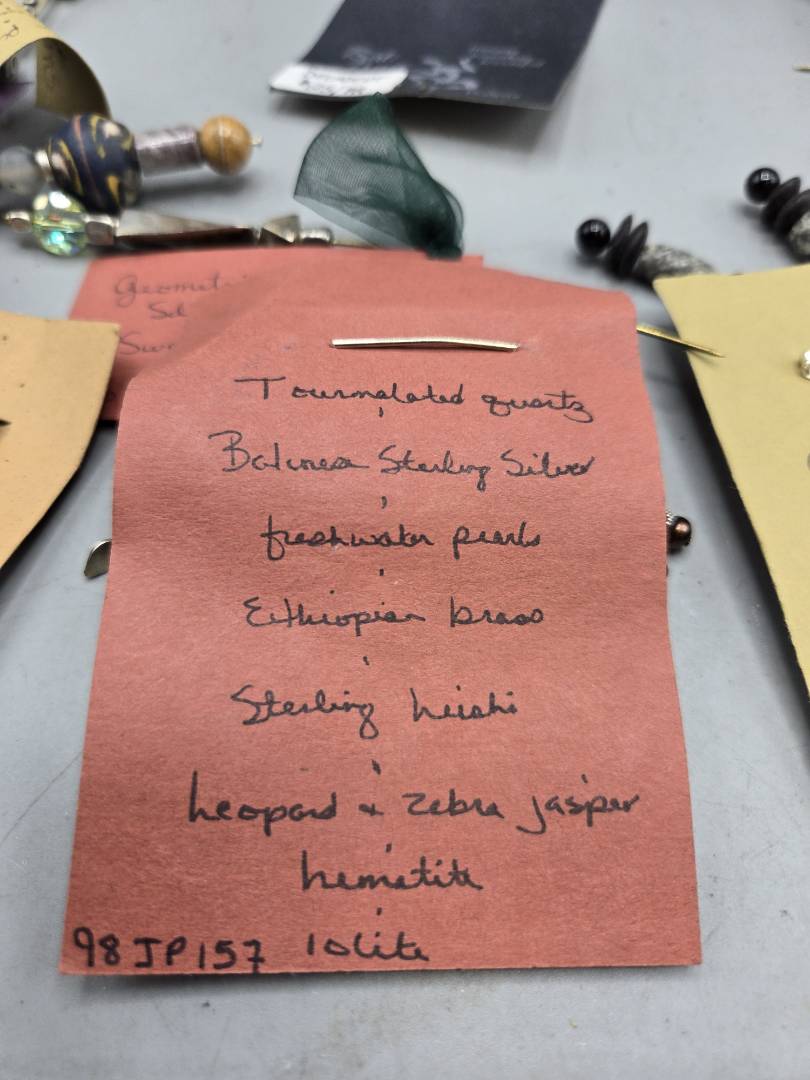 Geometri
Tourmalated quartz
Balinese Sterling Silver
freshwater pearls
Ethiopian brass
Sterling heishi
Leopard + Zebra jasper
hematite
98JP157 Iolite